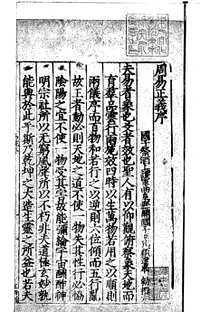 周易正義序
國子祭酒上護軍曲阜縣開國子臣孔穎達奉 勑撰
夫易者象也爻者效也聖人有以仰觀俯察象天地而
育羣品雲行雨施效四時以生萬物若用之以順則
兩儀序而百物和若行之以逆則六位傾而五行亂
故王者動必則天地之道不使一物失其性行必協
陰陽之宜不使一物受其害故能彌綸宇宙酬酢神
明宗社所以无窮風聲所以不朽非夫道極玄妙孰
能與於此乎斯乃乾坤之大造生靈之所益也若夫